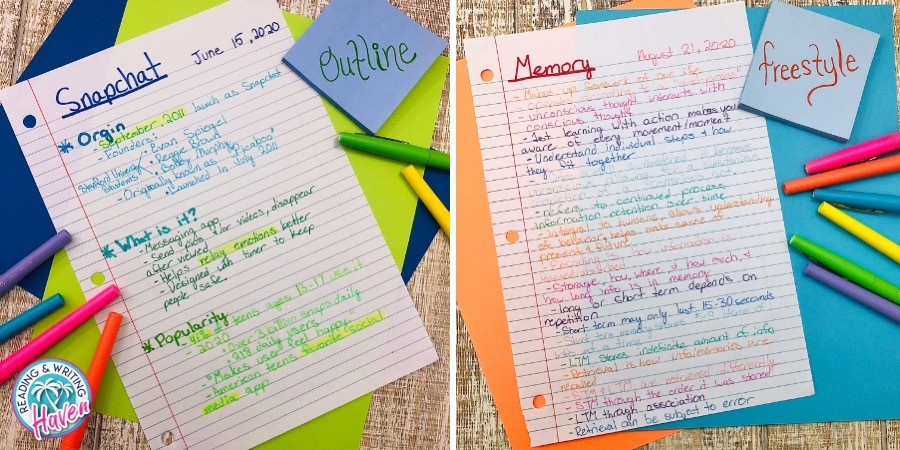 Snapchat
June 15, 2020
Outline
* Orgin
- September 2011 launch as Snapchat
- Founders: Evan Spiegel
Reggie Brown
Bobby Murphy
Stanford University
Students
- Originally known as
- Launched in July 2011
* What is it?
- Messaging app
- Send pics and/or videos, disappear
after viewed
- Helps relay emotions better
- Designed with timer to keep
people safe
* Popularity
- 41% of teens ages 13-17 use it
- 2020 - Over 3 billion snaps daily
- 218 daily users
- Makes user feel "happy"
- American teens favorite social
media app
READING & WRITING
Haven
Memory
August 21, 2020
freestyle
- Makes up framework of our life
unconscious thought interacts with
conscious thought
- 1st learning with action makes you
aware of every movement/moment
- Understand individual steps & how
they fit together
- refers to continued process
information retention over time
- Integral to humans, allows understanding
of behavior, helps make sense of
present & future
- Storage: how, where, how much, &
how long info is in memory
- long or short term depends on
repetition
- Short term may only last 15-30 seconds
- Short term memory stores 5-9 items of
info at a time
- LTM stores indefinite amount of info
- Retrieval is how info/memories are
recalled
- STM & LTM are retrieved differently
STM through the order it was stored
- LTM through association
- Retrieval can be subject to error